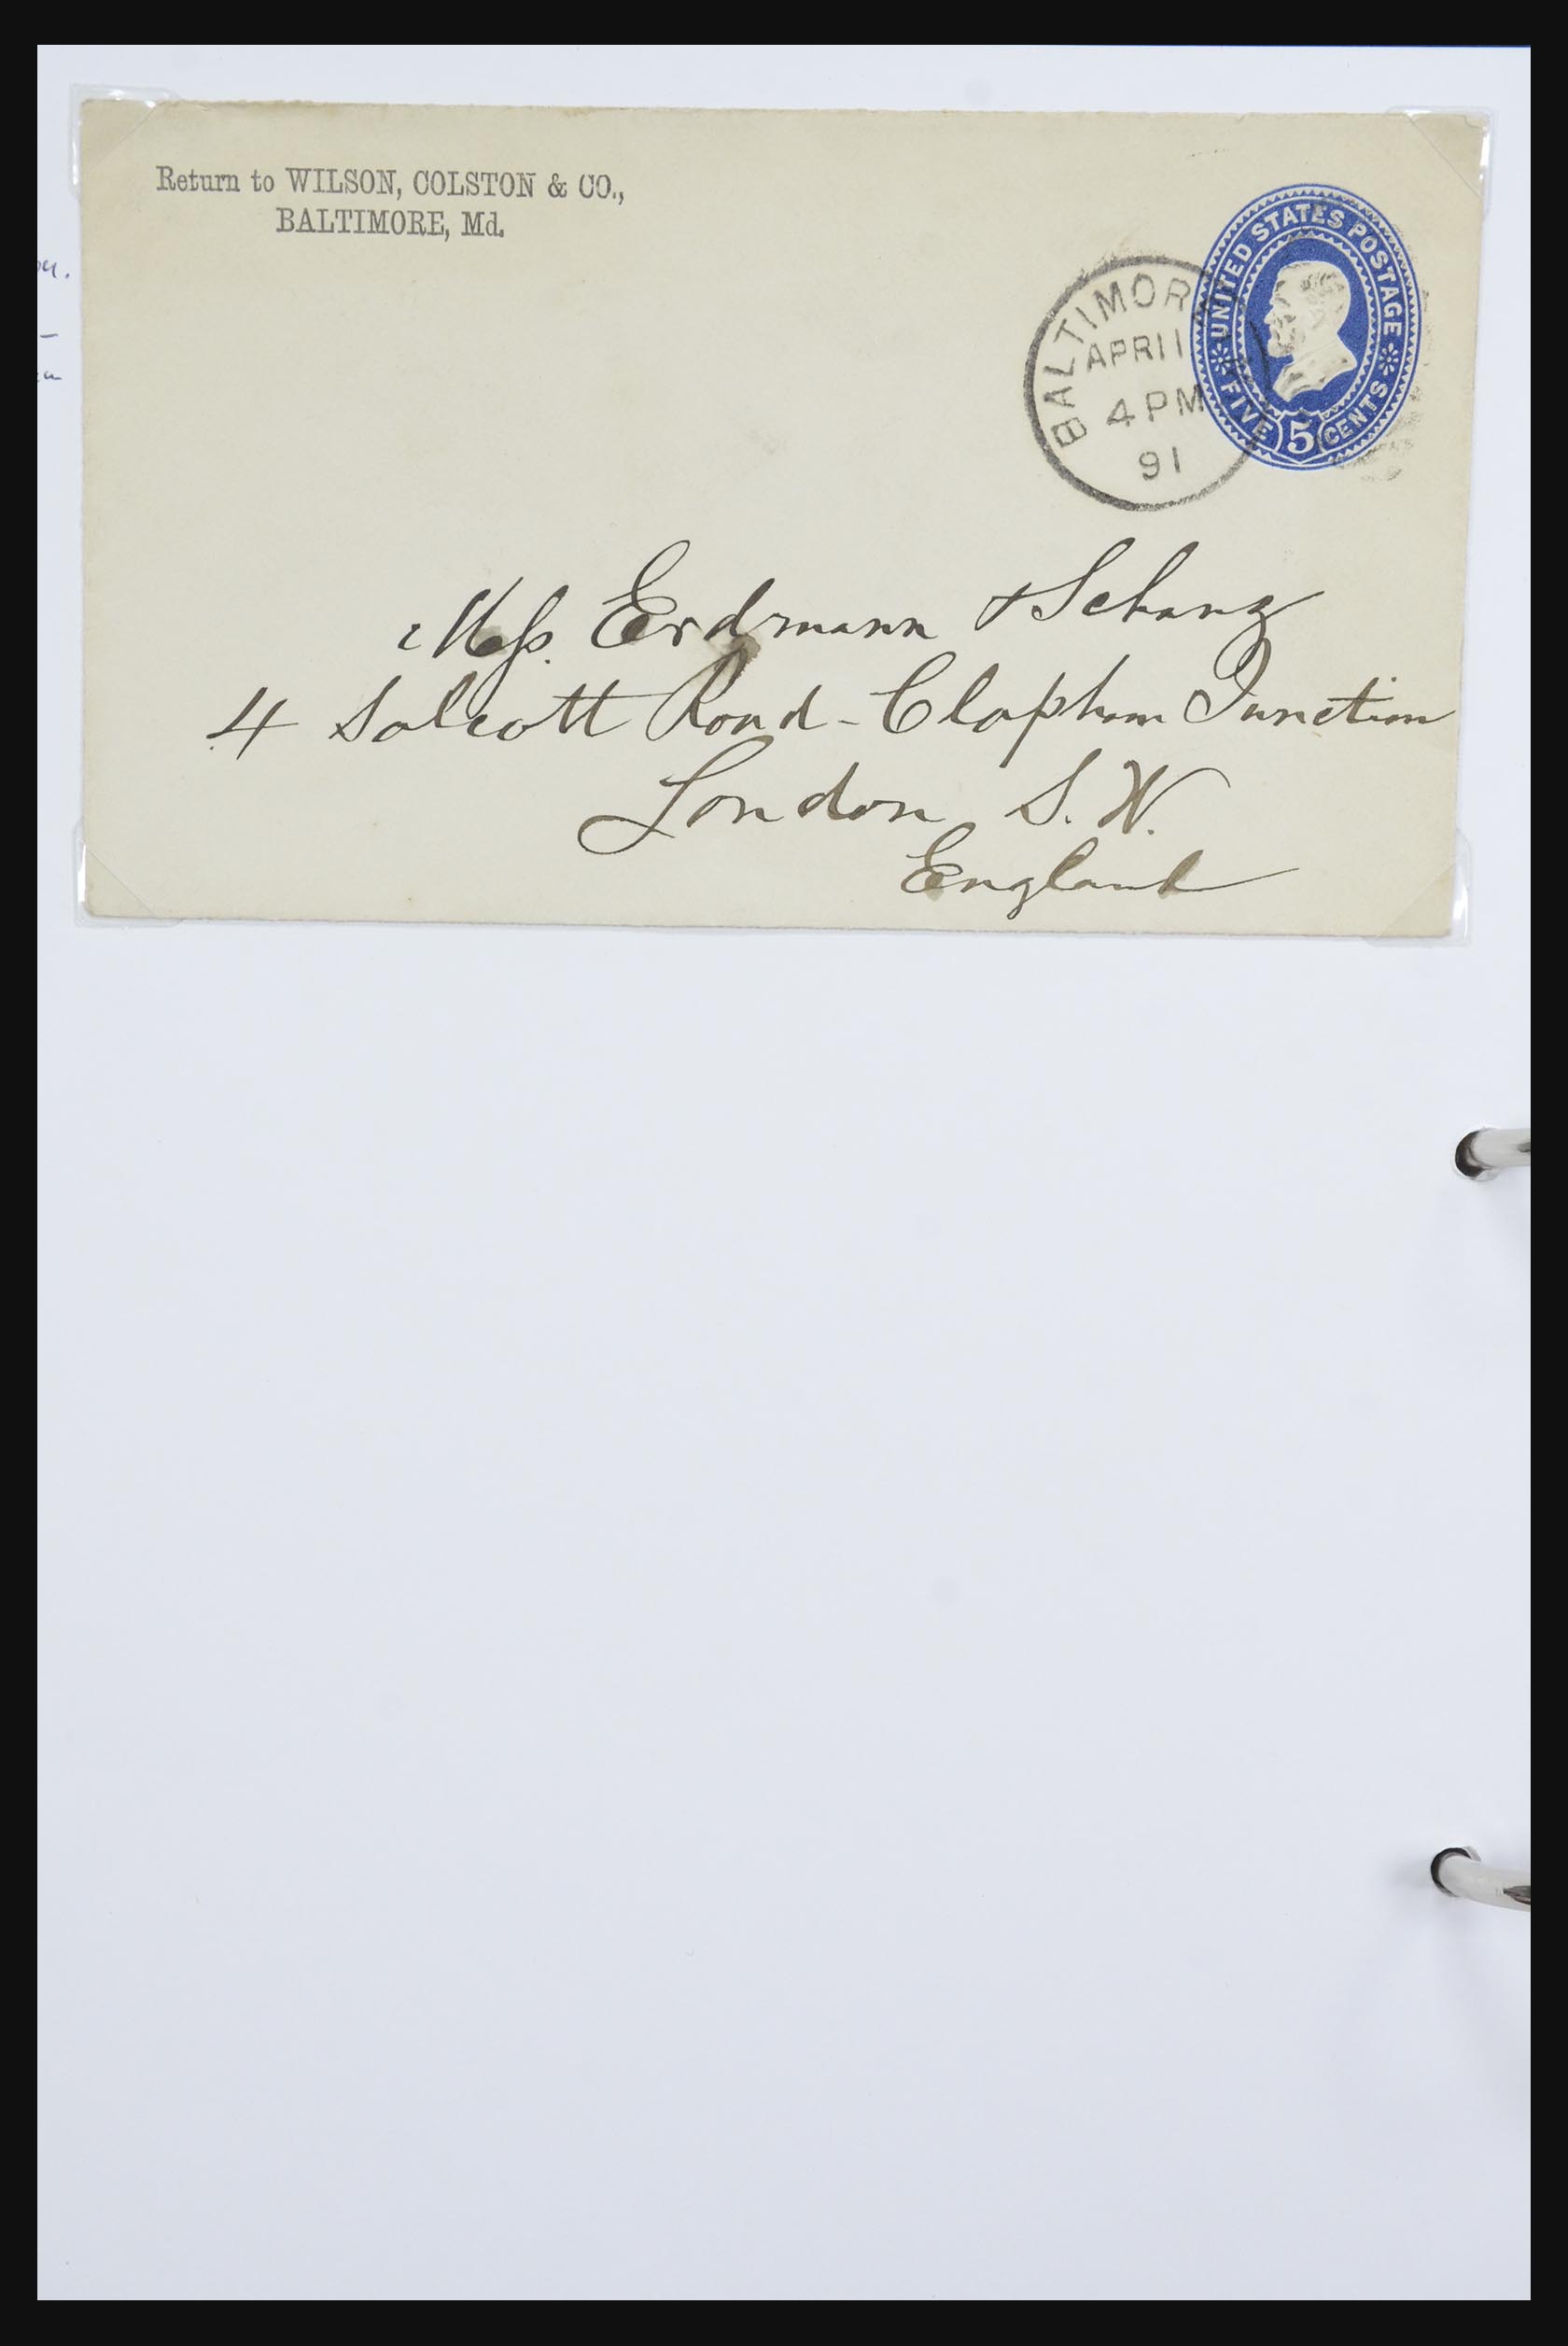 Return to WILSON, COLSTON & CO.,
BALTIMORE, Md.
UNITED STATES POSTAGE
FIVE 5 CENTS
BALTIMOR
APR 11
4 PM
91
Mess. Erdmann & Schanz
4 Salcott Road - Clapham Junction
London S. W.
England